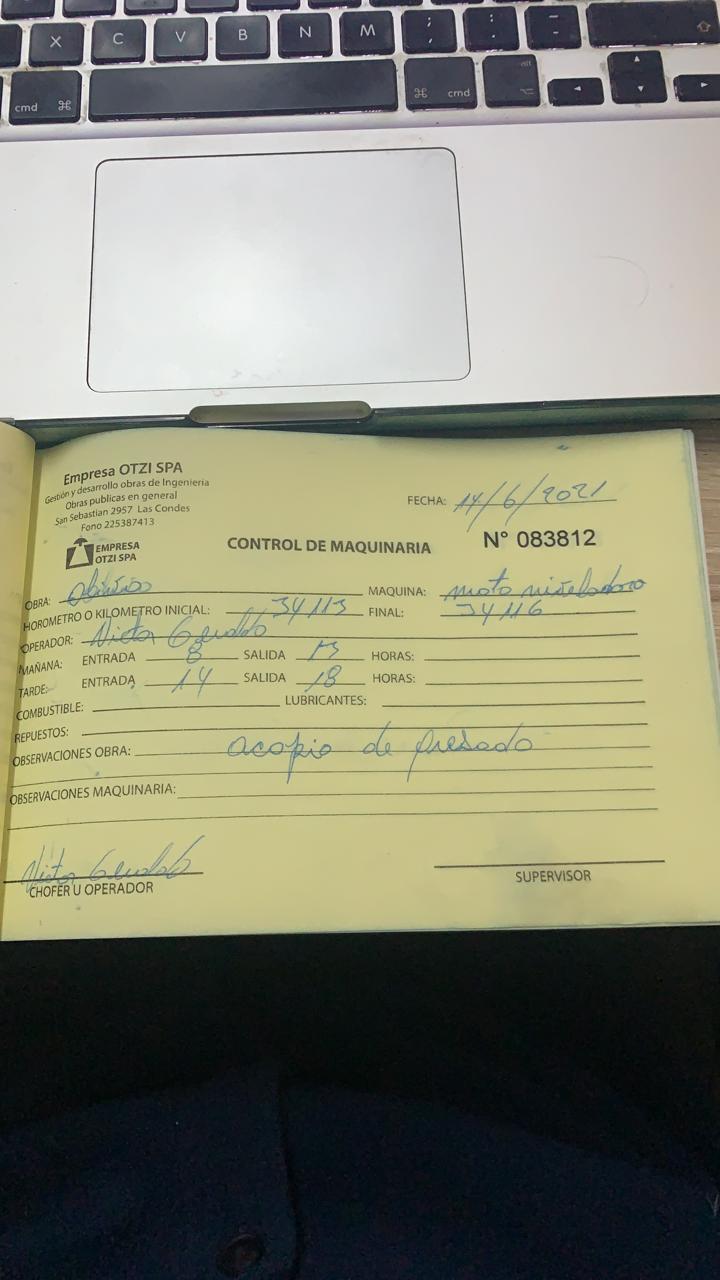 X C V B N M ; : , . -
cmd ⌘ ⌘ cmd alt
Empresa OTZI SPA
Gestión y desarrollo obras de Ingenieria
Obras publicas en general
San Sebastian 2957 Las Condes
Fono 225387413
EMPRESA
OTZI SPA
FECHA: 14/6/2021
CONTROL DE MAQUINARIA
N° 083812
OBRA: MAQUINA: moto niveladora
HOROMETRO O KILOMETRO INICIAL: 34113 FINAL: 34116
OPERADOR: Victor
MAÑANA: ENTRADA 8 SALIDA 13 HORAS:
TARDE: ENTRADA 14 SALIDA 18 HORAS:
COMBUSTIBLE: LUBRICANTES:
REPUESTOS:
OBSERVACIONES OBRA: acopio de
OBSERVACIONES MAQUINARIA:
Victor
CHOFER U OPERADOR
SUPERVISOR